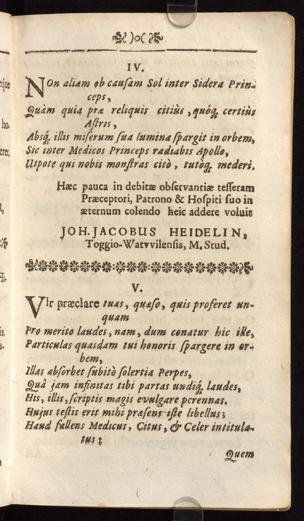 )o(
IV.
NOn aliam ob causam Sol inter Sidera Prin-
ceps,
Quàm quia præ reliquis citiùs, quóq; certiùs
Astris,
Absq; illis miserum sua lumina spargit in orbem,
Sic inter Medicos Princeps radiabis Apollo,
Utpote qui nobis monstras citò, tutòq; mederi.
Hæc pauca in debitæ observantiæ tesseram
Præceptori, Patrono & Hospiti suo in
æternum colendo heic addere voluit
JOH. JACOBUS HEIDELIN,
Toggio-Watvvilensis, M. Stud.
V.
VIr præclare tuas, quæso, quis proferet un-
quam
Pro merito laudes, nam, dum conatur hic ille,
Particulas quasdam tui honoris spargere in or-
bem,
Illas absorbet subitò solertia Perpes,
Quâ jam infinitas tibi partas undiq; laudes,
His, illis, scriptis magis evulgare perennas.
Hujus testis erit mihi præsens iste libellus;
Haud fallens Medicus, Citus, & Celer intitula-
tus;
Quem